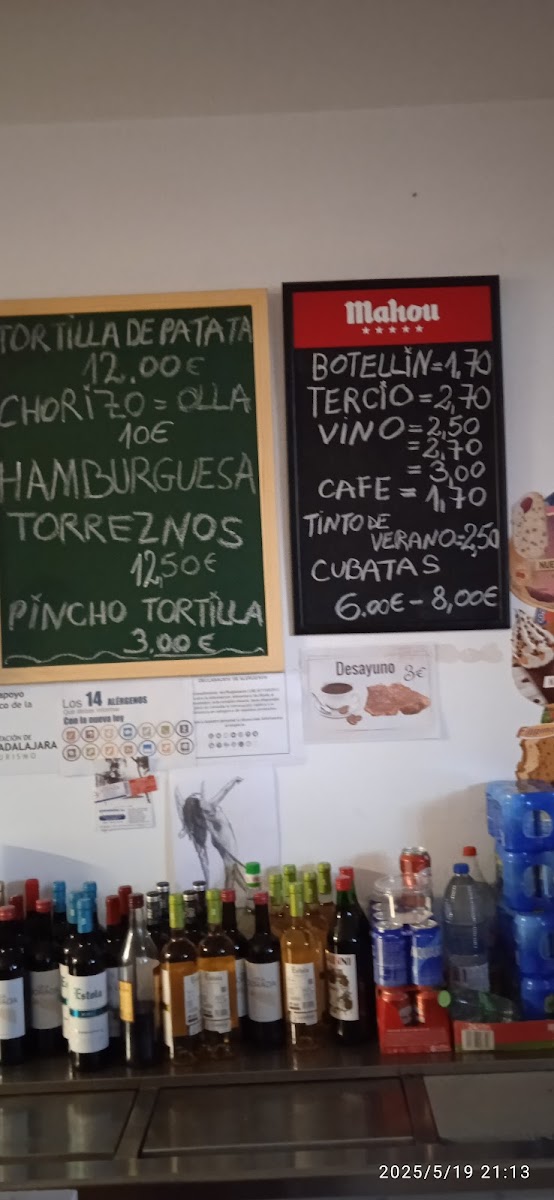 TORTILLA DE PATATA
12.00€
CHORIZO = OLLA
10€
HAMBURGUESA
TORREZNOS
12,50€
PINCHO TORTILLA
3.00€
Mahou
BOTELLIN = 1,70
TERCIO = 2,70
VINO = 2,50
= 2,70
= 3,00
CAFE = 1,70
TINTO DE
VERANO = 2,50
CUBATAS
6.00€ - 8,00€
apoyo
co de la
ADALAJARA
Los 14 ALÉRGENOS
Con la nueva ley
Desayuno 3€
Estola
2025/5/19 21:13